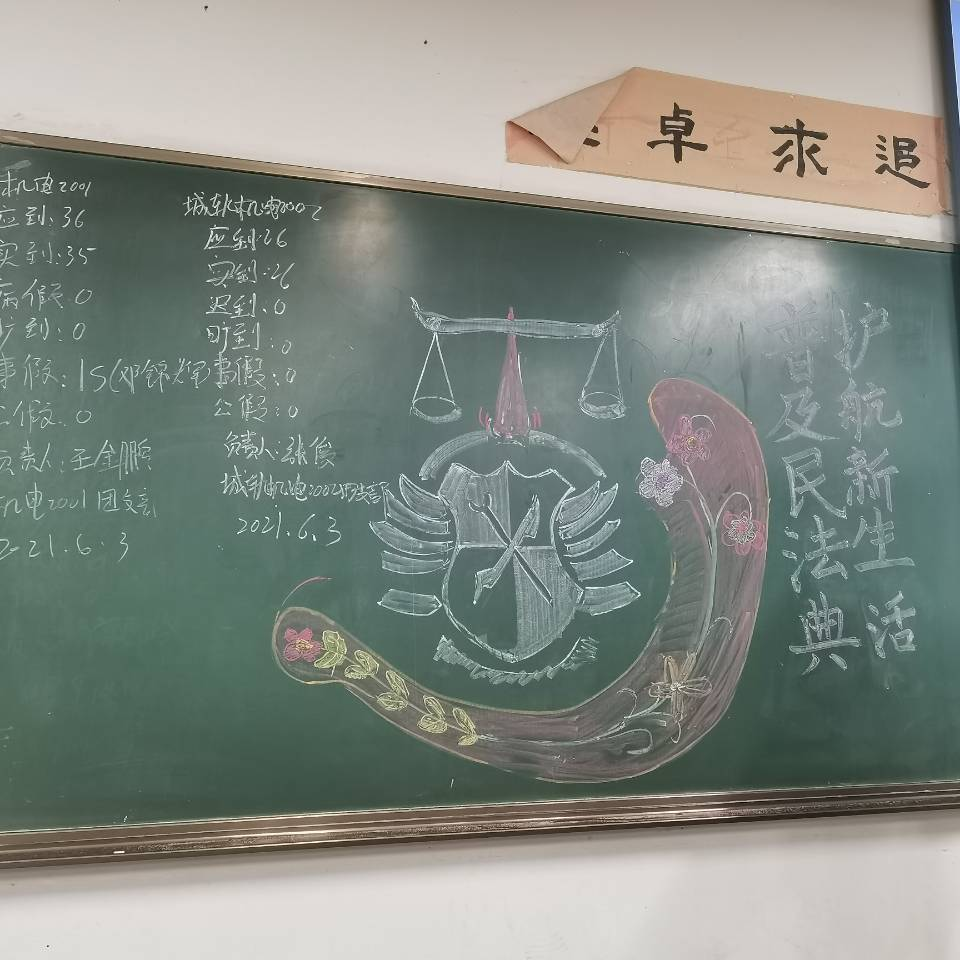 卓求追
机电2001
应到:36
实到:35
病假:0
少到:0
事假:1
公假:0
负责人:王金鹏
机电2001团支部
2021.6.3
城轨机电2002
应到:26
实到:26
迟到:0
旷到:0
事假:0
公假:0
负责人:张俊
城轨机电2002团支部
2021.6.3
普及民法典
护航新生活